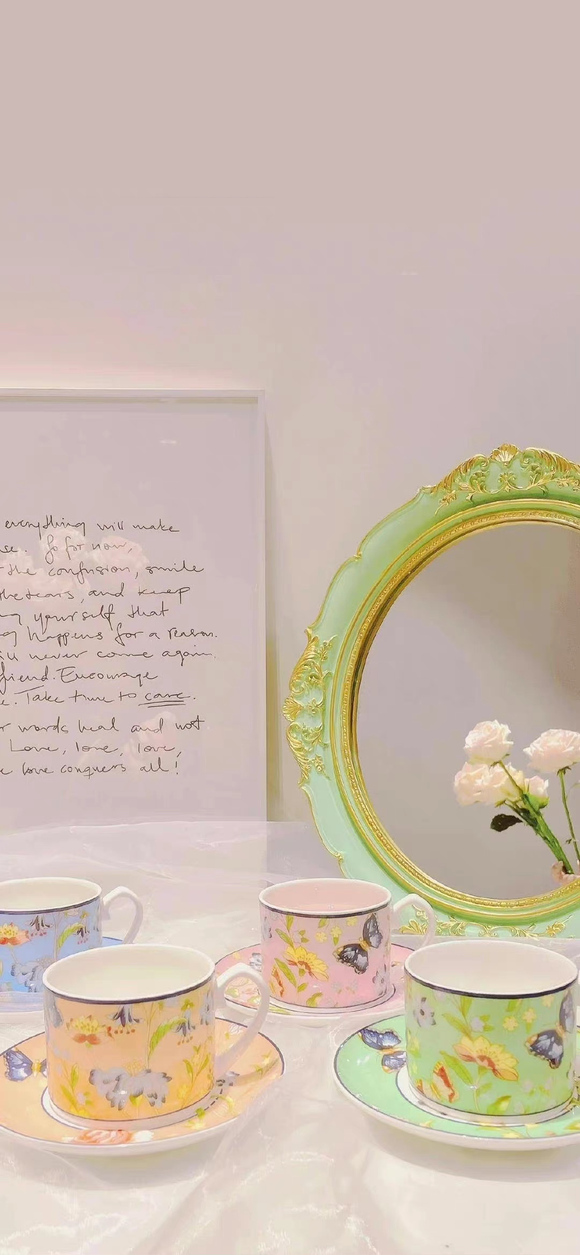 everything will make
se. So for now,
the confusion, smile
the tears, and keep
ng yourself that
ng happens for a reason.
will never come again.
friend. Encourage
e. Take time to care.
r words heal and not
Love, love, love,
e love conquers all!